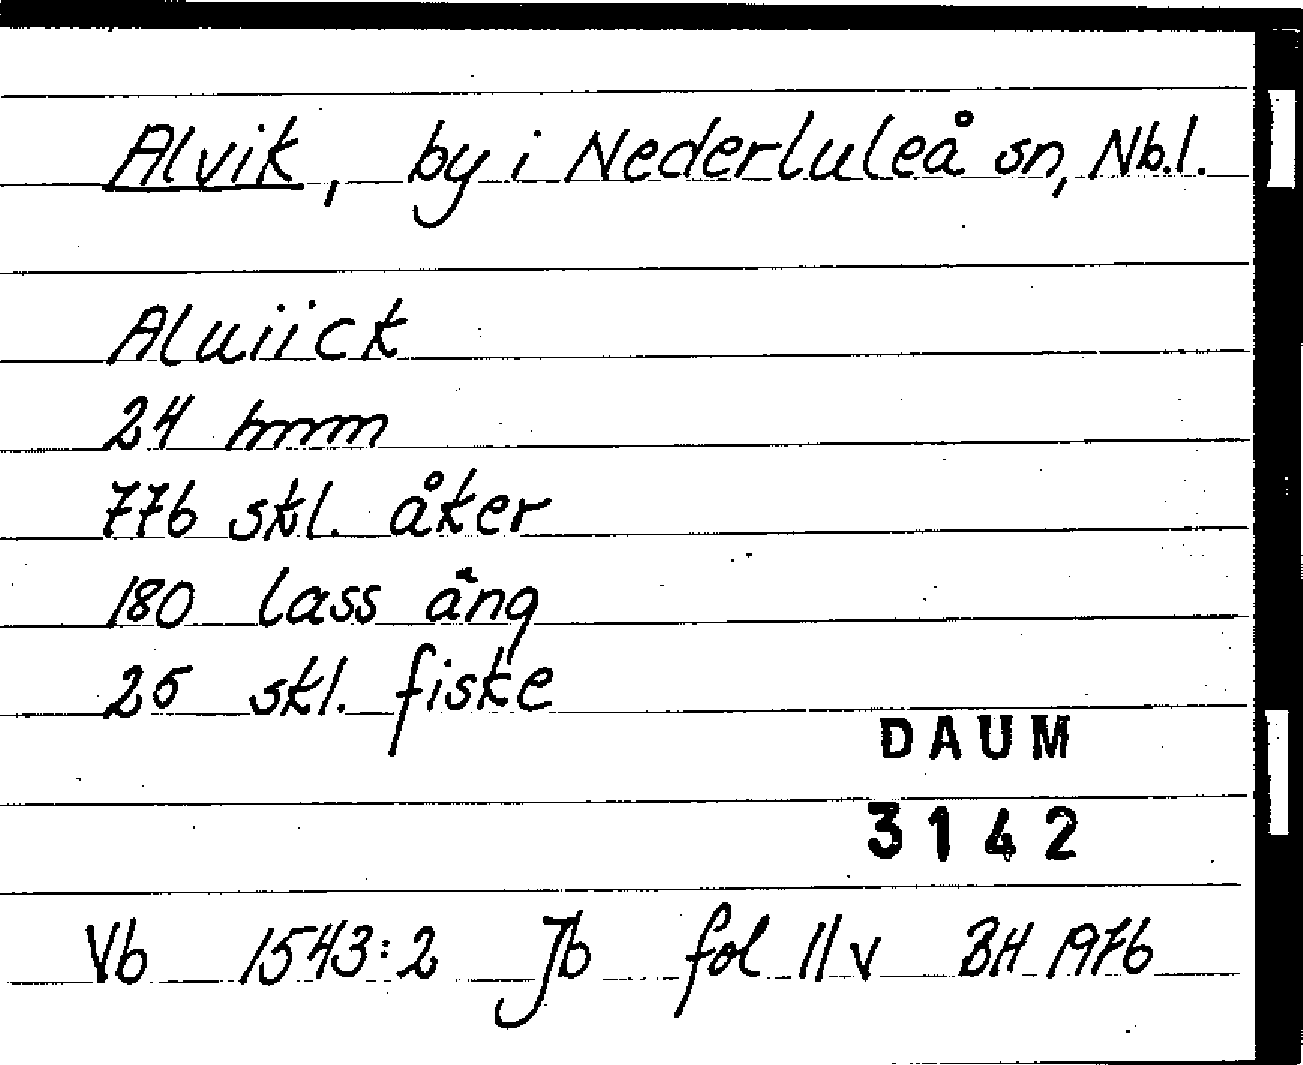 Alvik, by i Nederluleå sn, Nb.l.
Aluiick
24 hmm
776 skl. åker
180 lass äng
25 skl. fiske
DAUM
3142
Vb 1543:2 Jb fol 11 v BH 1976